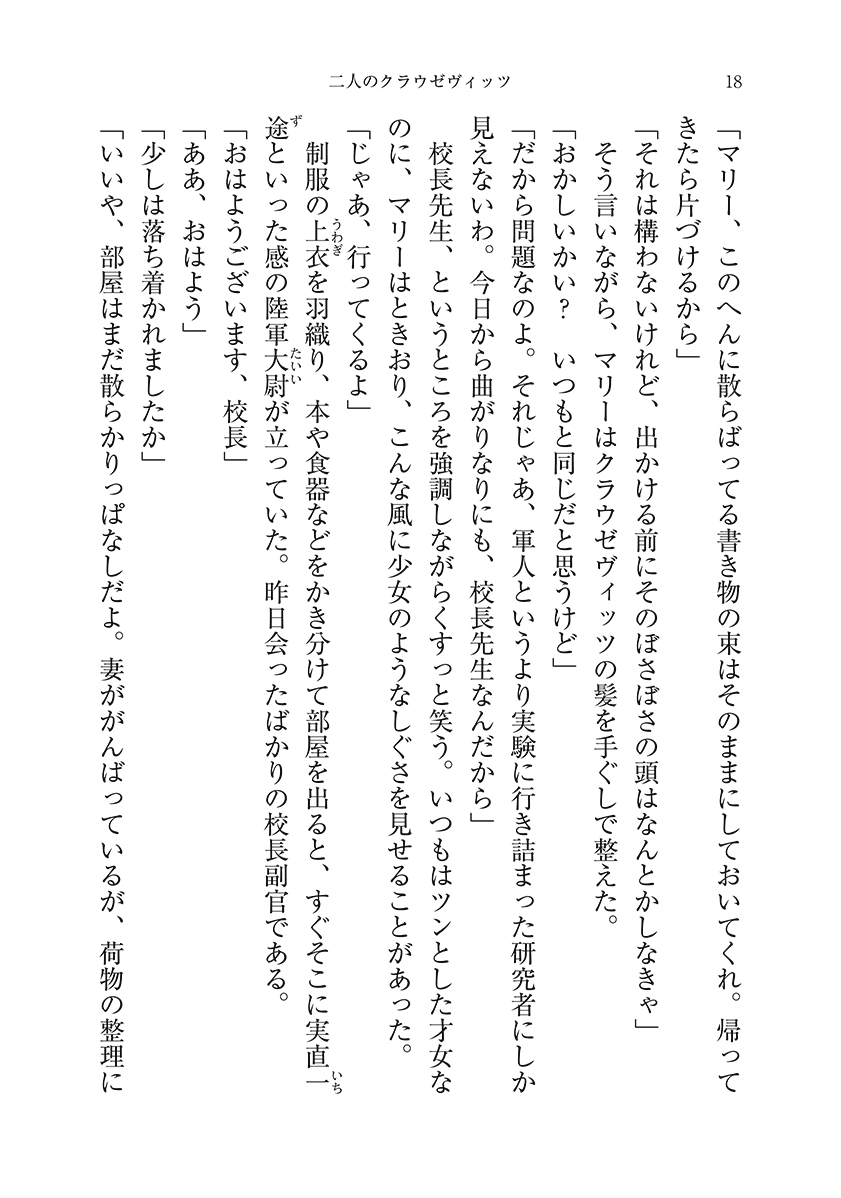 二人のクラウゼヴィッツ
18
「マリー、このへんに散らばってる書き物の束はそのままにしておいてくれ。帰って
きたら片づけるから」
「それは構わないけれど、出かける前にそのぼさぼさの頭はなんとかしなきゃ」
そう言いながら、マリーはクラウゼヴィッツの髪を手ぐしで整えた。
「おかしいかい？　いつもと同じだと思うけど」
「だから問題なのよ。それじゃあ、軍人というより実験に行き詰まった研究者にしか
見えないわ。今日から曲がりなりにも、校長先生なんだから」
校長先生、というところを強調しながらくすっと笑う。いつもはツンとした才女な
のに、マリーはときおり、こんな風に少女のようなしぐさを見せることがあった。
「じゃあ、行ってくるよ」
制服の上衣を羽織り、本や食器などをかき分けて部屋を出ると、すぐそこに実直一
途といった感の陸軍大尉が立っていた。昨日会ったばかりの校長副官である。
「おはようございます、校長」
「ああ、おはよう」
「少しは落ち着かれましたか」
「いいや、部屋はまだ散らかりっぱなしだよ。妻ががんばっているが、荷物の整理に